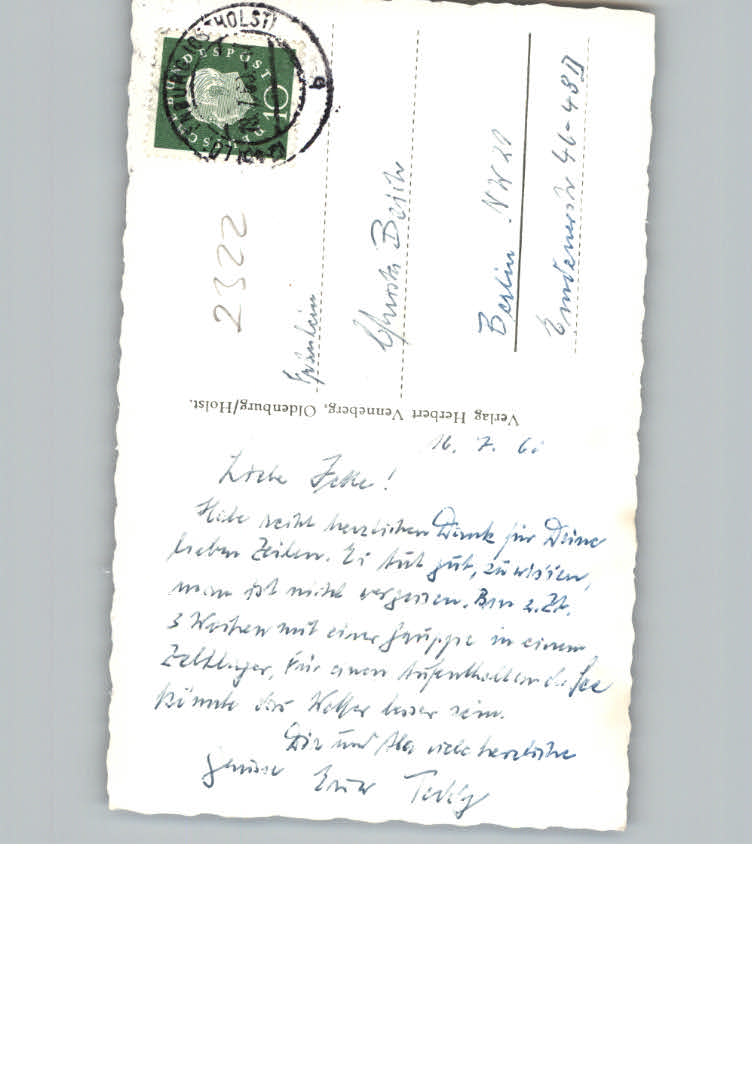 DEUTSCHE BUNDESPOST
10
2322
Fräulein
Christa
Berlin NW 21
Emdenerstr 46-48 II
Verlag Herbert Venneberg, Oldenburg/Holst.
16. 7. 60
Liebe
Habe recht herzlichen Dank für Deine
lieben Zeilen. Es tut gut, zu wissen,
man ist nicht vergessen. Bin z. Zt.
3 Wochen mit einer Gruppe in einem
Zeltlager. Für einen Aufenthalt an d. See
könnte das Wetter besser sein.
Dir und viele herzliche
Grüsse Euer Teddy